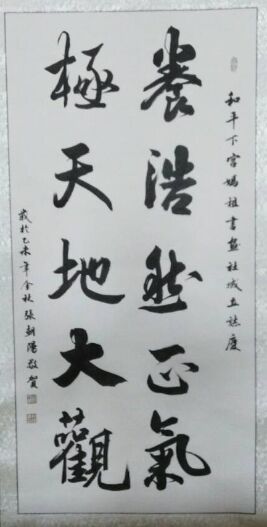 和平下宮媽祖書畫社成立誌慶
養浩然正氣
極天地大觀
歲於乙未年金秋張朝陽敬賀